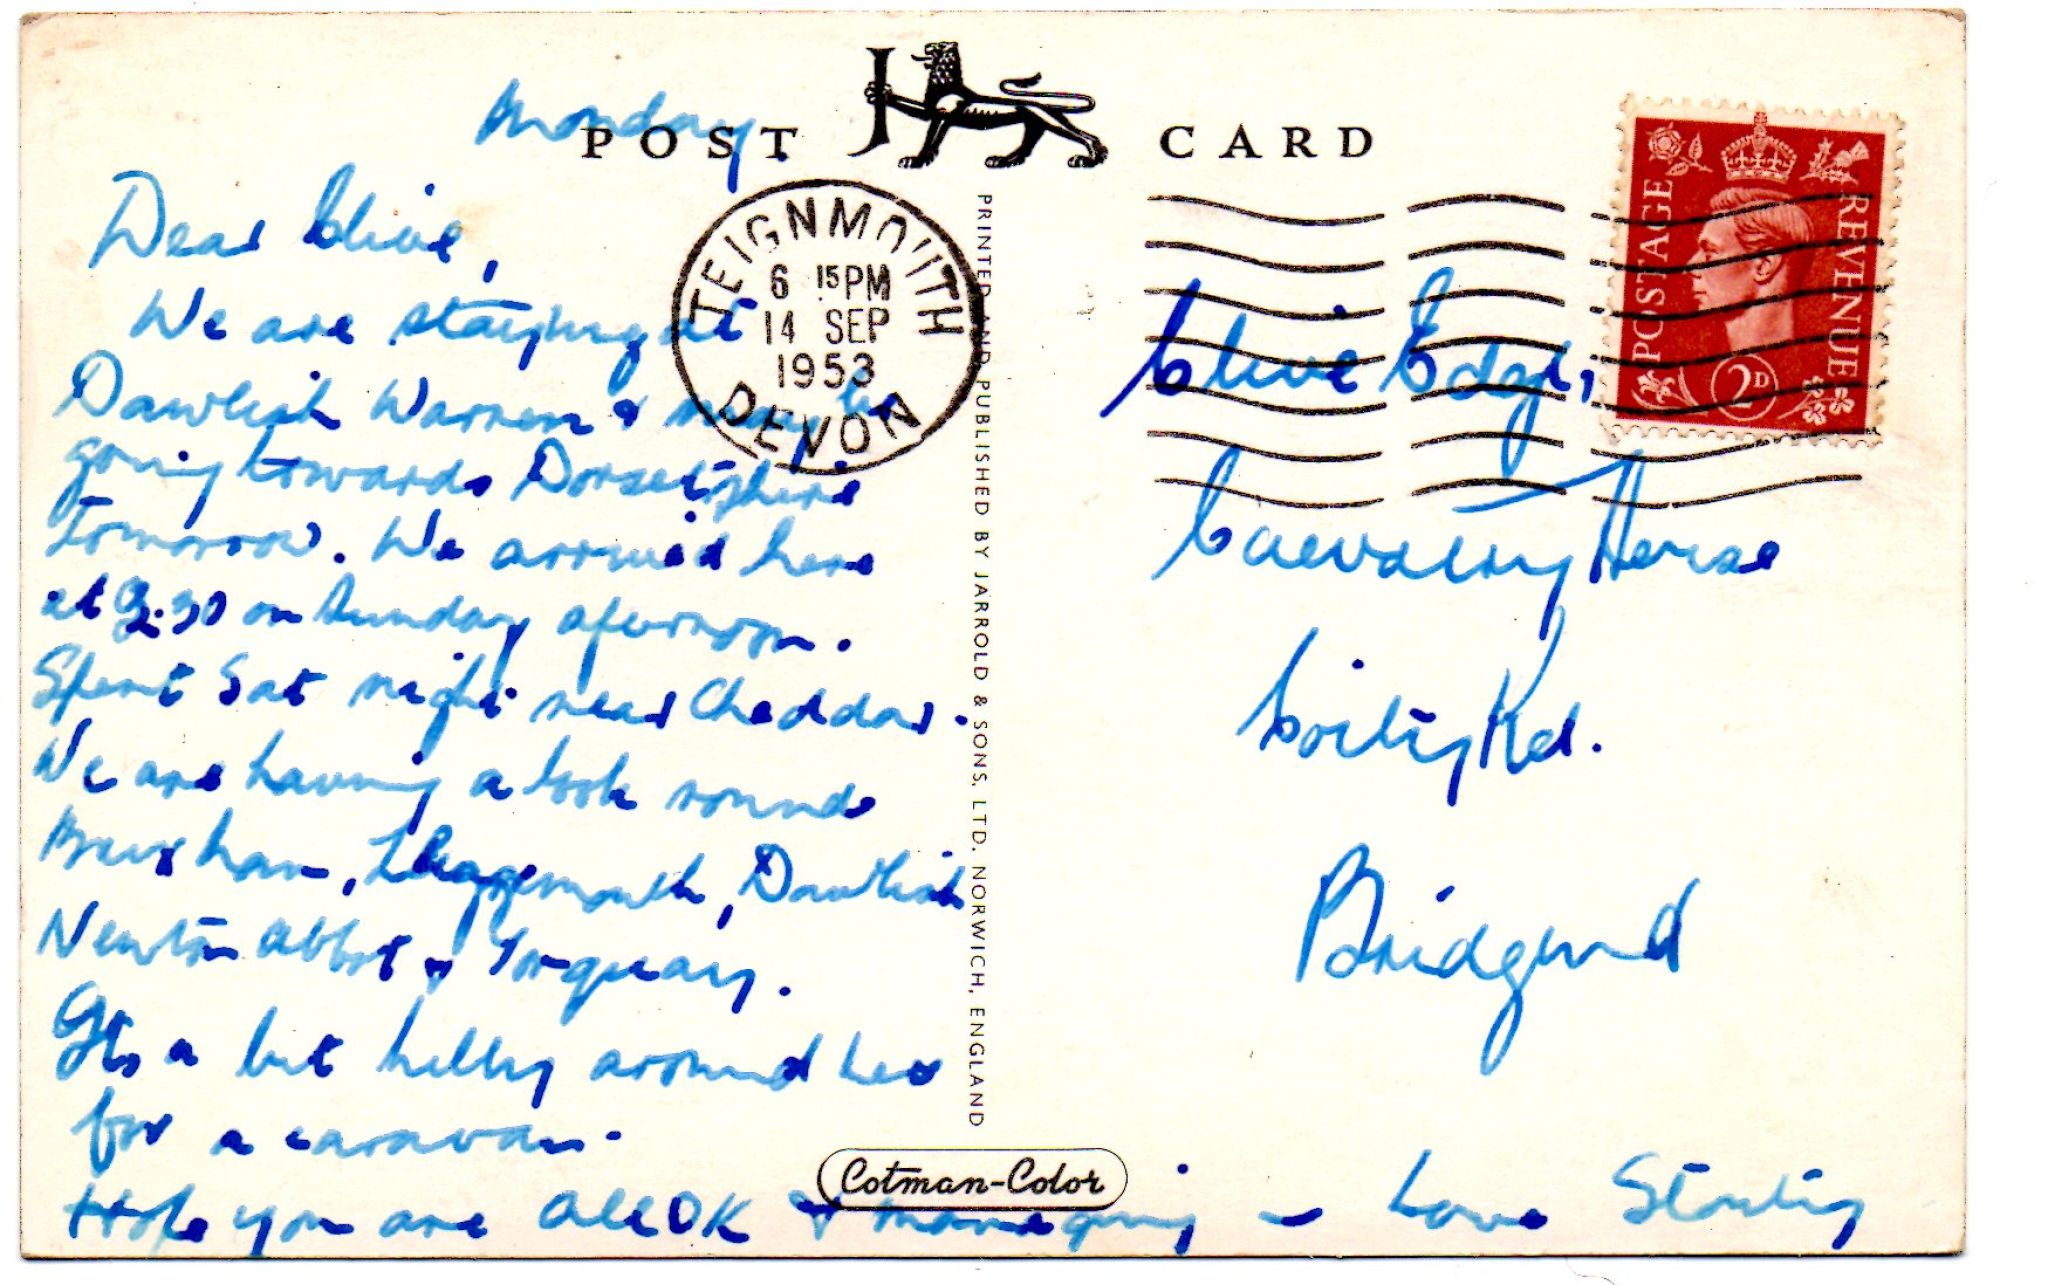 POST CARD
Monday
Dear Clive,
We are staying at
Dawlish Warren & may be
going towards Dorsetshire
tomorrow. We arrived here
at 3.30 on Sunday afternoon.
Spent Sat night near Cheddar.
We are having a look round
Brixham, Dawlish
Newton Abbot & Torquay.
Its a bit hilly around here
for a caravan.
Hope you are all OK & managing - Love
TEIGNMOUTH
6 15 PM
14 SEP
1953
DEVON
PRINTED AND PUBLISHED BY JARROLD & SONS, LTD. NORWICH, ENGLAND
Cotman-Color
POSTAGE REVENUE
2D
Clive Edge,
House
Coity Rd.
Bridgend